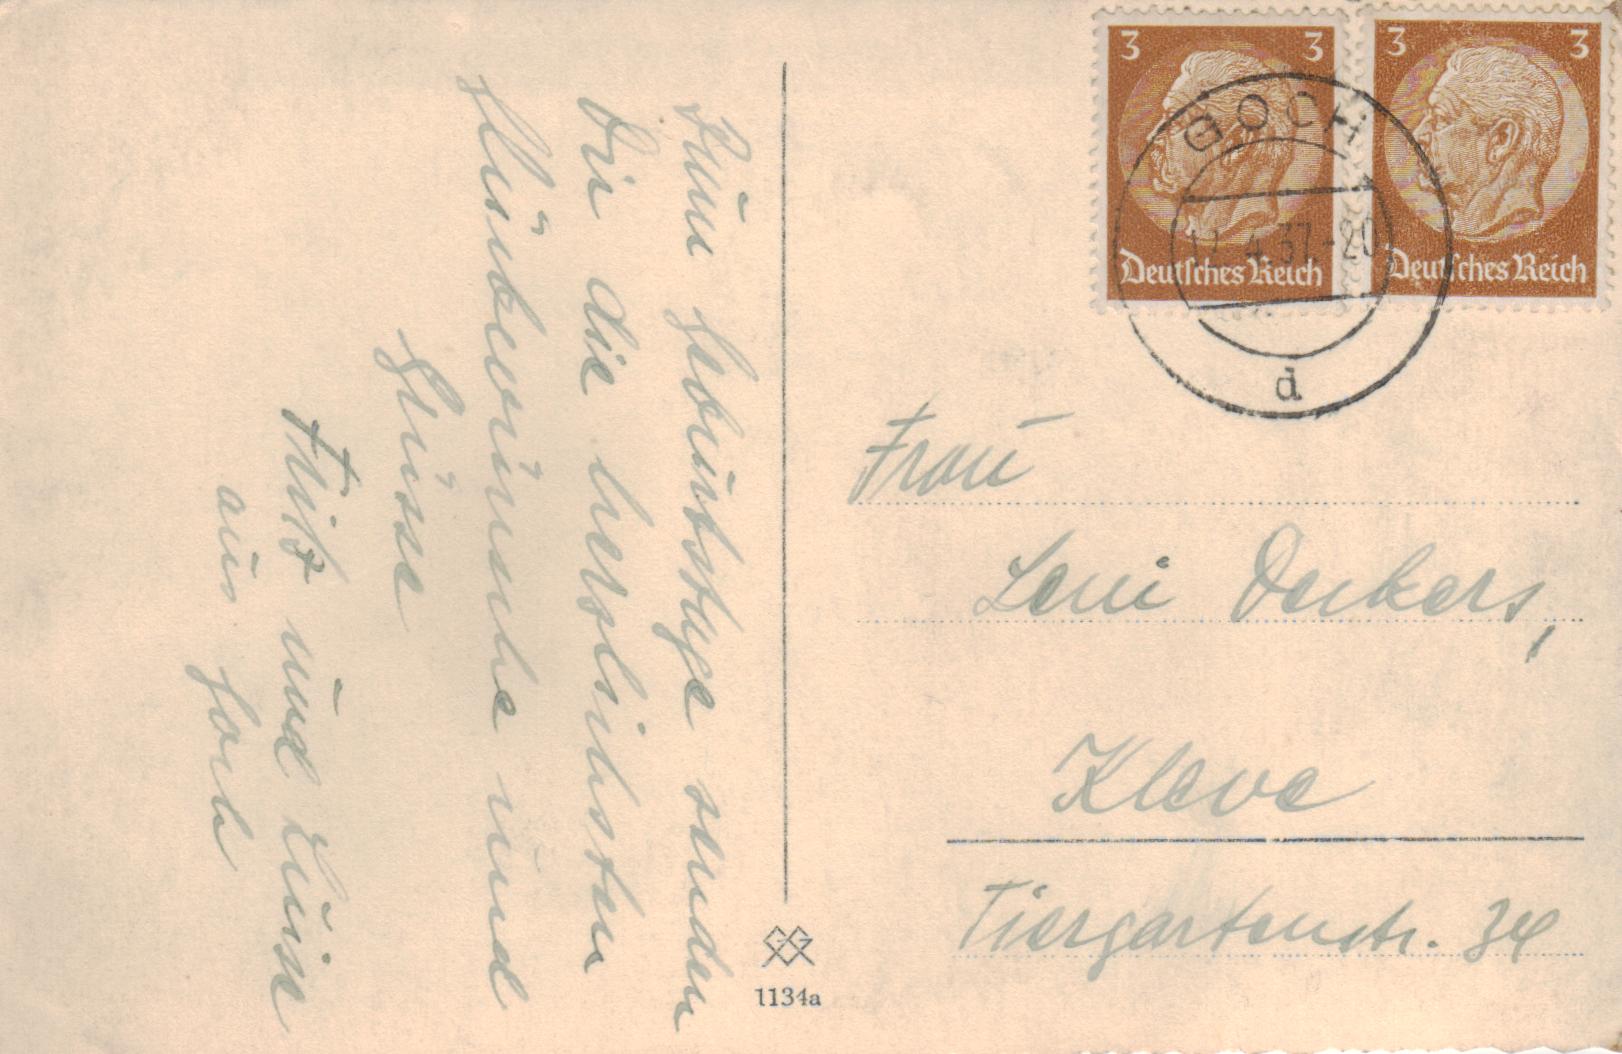 3 3
Deutsches Reich
3 3
Deutsches Reich
GOCH
4.37-20
d
Zum Geburtstage senden
Dir die herzlichsten
Glückwünsche und
Grüsse
und Luise
aus Goch
Frau
Leni Deckers,
Kleve
Tiergartenstr. 34
1134a